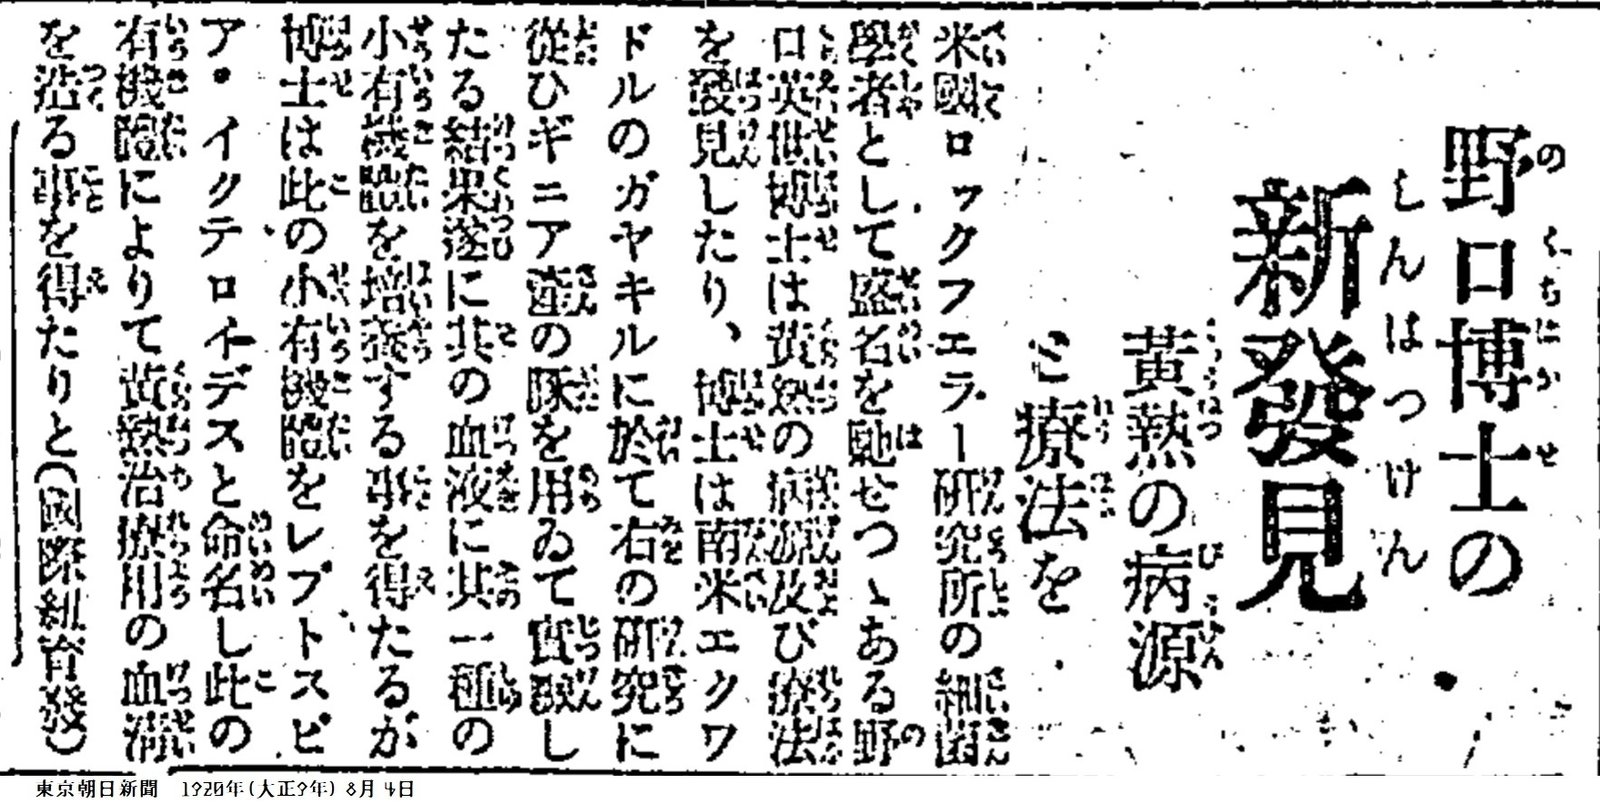 野口博士の
新發見
黃熱の病源
ミ療法を
米國ロックフェラー研究所の細菌
學者として盛名を馳せつゝある野
口英世博士は黃熱の病源及び療法
を發見したり、博士は南米エクワ
ドルのガヤキルに於て右の研究に
從ひギニア產の豚を用ゐて實驗し
たる結果遂に其の血液に其一種の
小有機體を培養する事を得たるが
博士は此の小有機體をレプトスピ
ア・イクテロイデスと命名し此の
有機體によりて黃熱治療用の血淸
を造る事を得たりと(國際紐育發)
東京朝日新聞 1920年(大正9年) 8月 4日